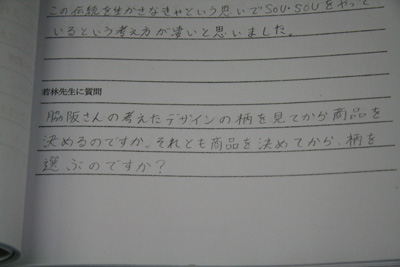 この伝統を生かさなきゃという思いでSOU・SOUをやって
いるという考え方が凄いと思いました。
若林先生に質問
脇阪さんの考えたデザインの柄を見てから商品を
決めるのですか。それとも商品を決めてから、柄を
選ぶのですか?